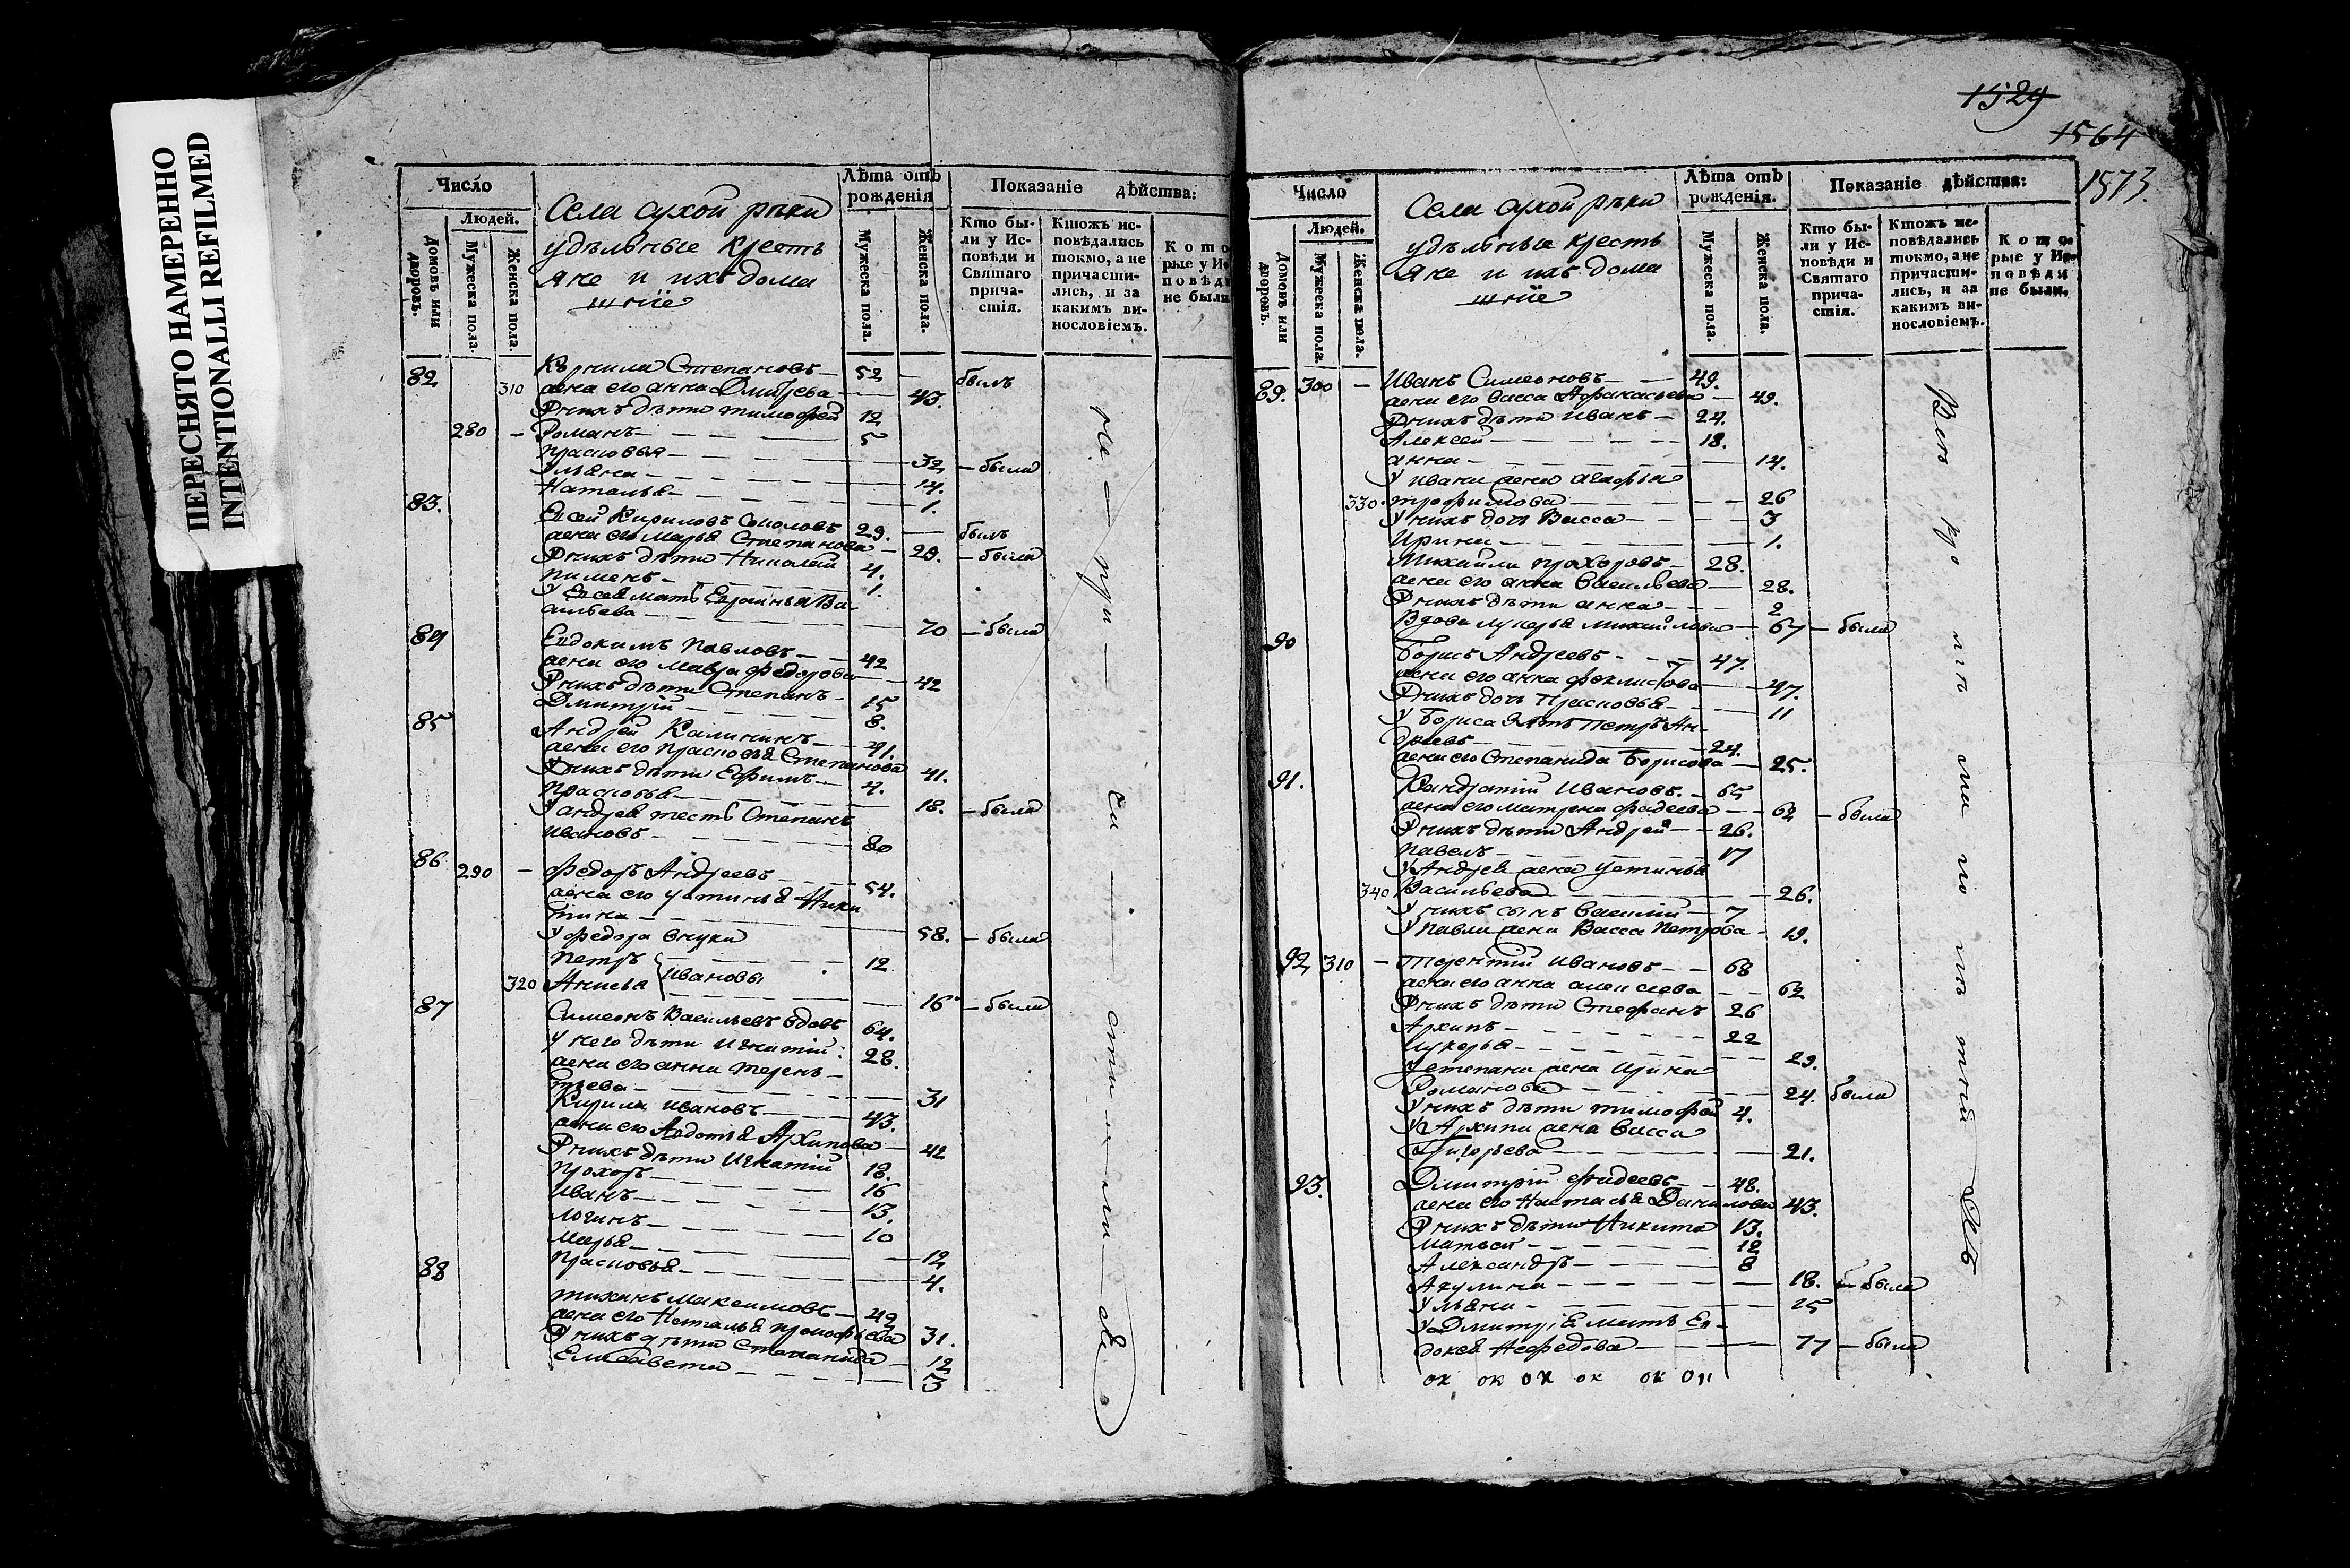 ПЕРЕСНЯТО НАМЕРЕННО
INTENTIONALLI REFILMED
Число
Людей.
Домовъ или дворовъ.
Мужеска пола.
Женска пола.
Села сухой рѣки
удѣльные кресть
яне и ихъ дома
шніе
Лѣта отъ рожденія
Мужеска пола.
Женска пола.
Показаніе дѣйства:
Кто бы-
ли у Ис-
повѣди и
Святаго
прича-
стія.
Ктожъ ис-
повѣдались
токмо, а не
причасти-
лись, и за
какимъ ви-
нословіемъ.
Кото
рые у Ис
повѣди
не были.
82 Кирила Степановъ — 52 — былъ
310 жена его анна Дмитрева — 43.
У нихъ дѣти тимофей 12
280 — Романъ — 5
прасковья — 32 — была
Ульяна — 14.
Наталья — 1.
83. Елсей Кириловъ Соколовъ 29. — былъ
жена его Марья Степанова — 29. — была
У нихъ дѣти Николай 4.
пименъ — 1.
У Елсея мать Ефросинья Ва-
сильева — 70 — была
84 Евдокимъ Павловъ — 42
жена его Мавра федорова — 42
У нихъ дѣти Степанъ — 15
Дмитрій — 8.
85 Андрей Калининъ — 41.
жена его прасковья Степанова 41.
У нихъ дѣти Ефимъ — 4.
прасковья — 18. — была
У андрея тесть Степанъ
ивановъ — 80
86 290 — федоръ Андреевъ — 54.
жена его устинья Ники
тина — 58. — была
У федора внуки
петръ } Ивановы 12
320 Анисья 16 — была
87 Симеонъ Васильевъ вдовъ 64.
у него дѣти игнатій: 28.
жена его анна терень-
тьева — 31
Кирила ивановъ — 43.
жена его Авдотья Архипова — 42
У нихъ дѣти Игнатій 18.
прохоръ — 16
иванъ — 13.
логинъ — 10
марья — 12
прасковья — 4.
88 тиханъ Максимовъ — 42
жена его Наталья прокофьева 31.
У нихъ дѣти Степанида — 12
Елисавета — 3
не — при — ча — сти — ли — ся
1529
1564
1573.
Число
Людей.
Домовъ или дворовъ.
Мужеска пола.
Женска пола.
Села сухой рѣки
удѣльные кресть
яне и ихъ дома
шніе
Лѣта отъ рожденія.
Мужеска пола.
Женска пола.
Показаніе дѣйства:
Кто бы-
ли у Ис-
повѣди и
Святаго
прича-
стія.
Ктожъ ис-
повѣдались
токмо, а не
причасти-
лись, и за
какимъ ви-
нословіемъ.
Кото-
рые у Ис-
повѣди
не были.
89. 300 — Иванъ Симеоновъ — 49.
жена его васса Афанасьева — 49.
У нихъ дѣти иванъ — 24.
Алексей — 18.
анна — 14.
У ивана жена агафья
330. трофимова — 26
У нихъ дочь Васса — 3
Ирина — 1.
Михайла прохоровъ — 28.
жена его анна васильева — 28.
У нихъ дѣти анна — 2
Вдова лукерья михайлова — 67 — была
90 Борисъ Андреевъ — 47.
жена его анна феклистова — 47.
У нихъ дочь Прасковья — 11
У Бориса зять Петръ Ан-
дреевъ — 24.
жена его Степанида Борисова — 25.
91. Кандратій Ивановъ — 65
жена его матрена фадеева — 62 — была
У нихъ дѣти Андрей — 26.
павелъ — 17
У Андрея жена устинья
340 Васильева — 26.
У нихъ сынъ василій — 7
У павла жена Васса петрова — 19.
92 310 — терентій ивановъ — 68
жена его анна алексеева — 62
У нихъ дѣти Стефанъ 26
Архипъ — 22
лукерья — 29.
У степана жена ирина
Романова — 24. была
У нихъ дѣти тимофей 4.
У Архипа жена васса
Григорьева — 21.
93. Дмитрій фадеевъ — 48.
жена его Настасья Данилова 43.
У нихъ дѣти Никита 13.
матвей — 12
Александръ — 8
Акулина — 18. — была
Ульяна — 15
У Дмитрія мать Ев-
докея Нефедова — 77 — была